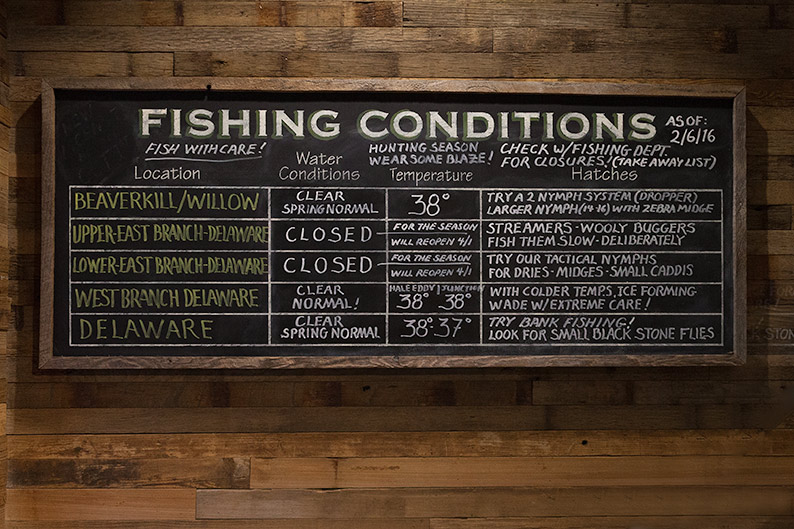 FISHING CONDITIONS
AS OF:
2/6/16
FISH WITH CARE!
HUNTING SEASON
WEAR SOME BLAZE!
CHECK W/FISHING DEPT.
FOR CLOSURES! (TAKE AWAY LIST)
Location
Water
Conditions
Temperature
Hatches
BEAVERKILL/WILLOW
CLEAR
SPRING NORMAL
38°
TRY A 2 NYMPH SYSTEM (DROPPER)
LARGER NYMPH WITH ZEBRA MIDGE
UPPER-EAST BRANCH-DELAWARE
CLOSED
FOR THE SEASON
WILL REOPEN 4/1
STREAMERS - WOOLY BUGGERS
FISH THEM SLOW - DELIBERATELY
LOWER-EAST BRANCH-DELAWARE
CLOSED
FOR THE SEASON
WILL REOPEN 4/1
TRY OUR TACTICAL NYMPHS
FOR DRIES - MIDGES - SMALL CADDIS
WEST BRANCH DELAWARE
CLEAR
NORMAL!
HALE EDDY JUNCTION
38° 38°
WITH COLDER TEMPS, ICE FORMING
WADE W/EXTREME CARE!
DELAWARE
CLEAR
SPRING NORMAL
38° 37°
TRY BANK FISHING!
LOOK FOR SMALL BLACK STONE FLIES